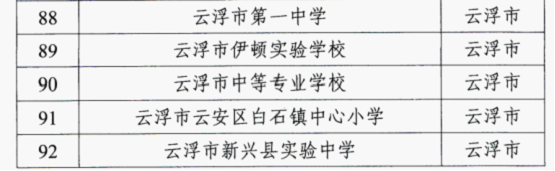 88 云浮市第一中学 云浮市
89 云浮市伊顿实验学校 云浮市
90 云浮市中等专业学校 云浮市
91 云浮市云安区白石镇中心小学 云浮市
92 云浮市新兴县实验中学 云浮市